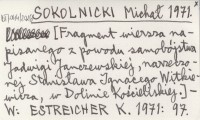 SOKOLNICKI Michał 1971.
[Fragment wiersza na-
pisanego z powodu samobójstwa
Jadwigi Janczewskiej narzeczo-
nej Stanisława Ignacego Witkie-
wicza, w Dolinie Kościeliskiej.]
W: ESTREICHER K. 1971: 97.